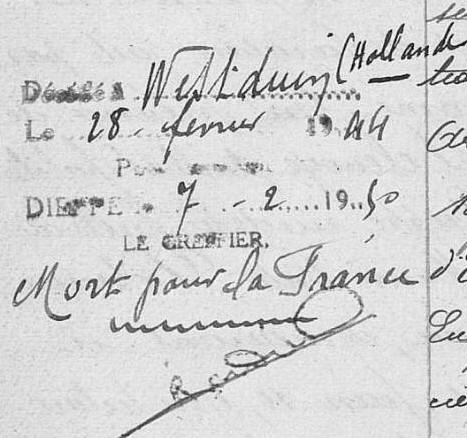 Décédé à Westduin (Hollande
Le 28 février 1944
Pour mention
DIEPPE le 7 - 2 1950
LE GREFFIER,
Mort pour la France